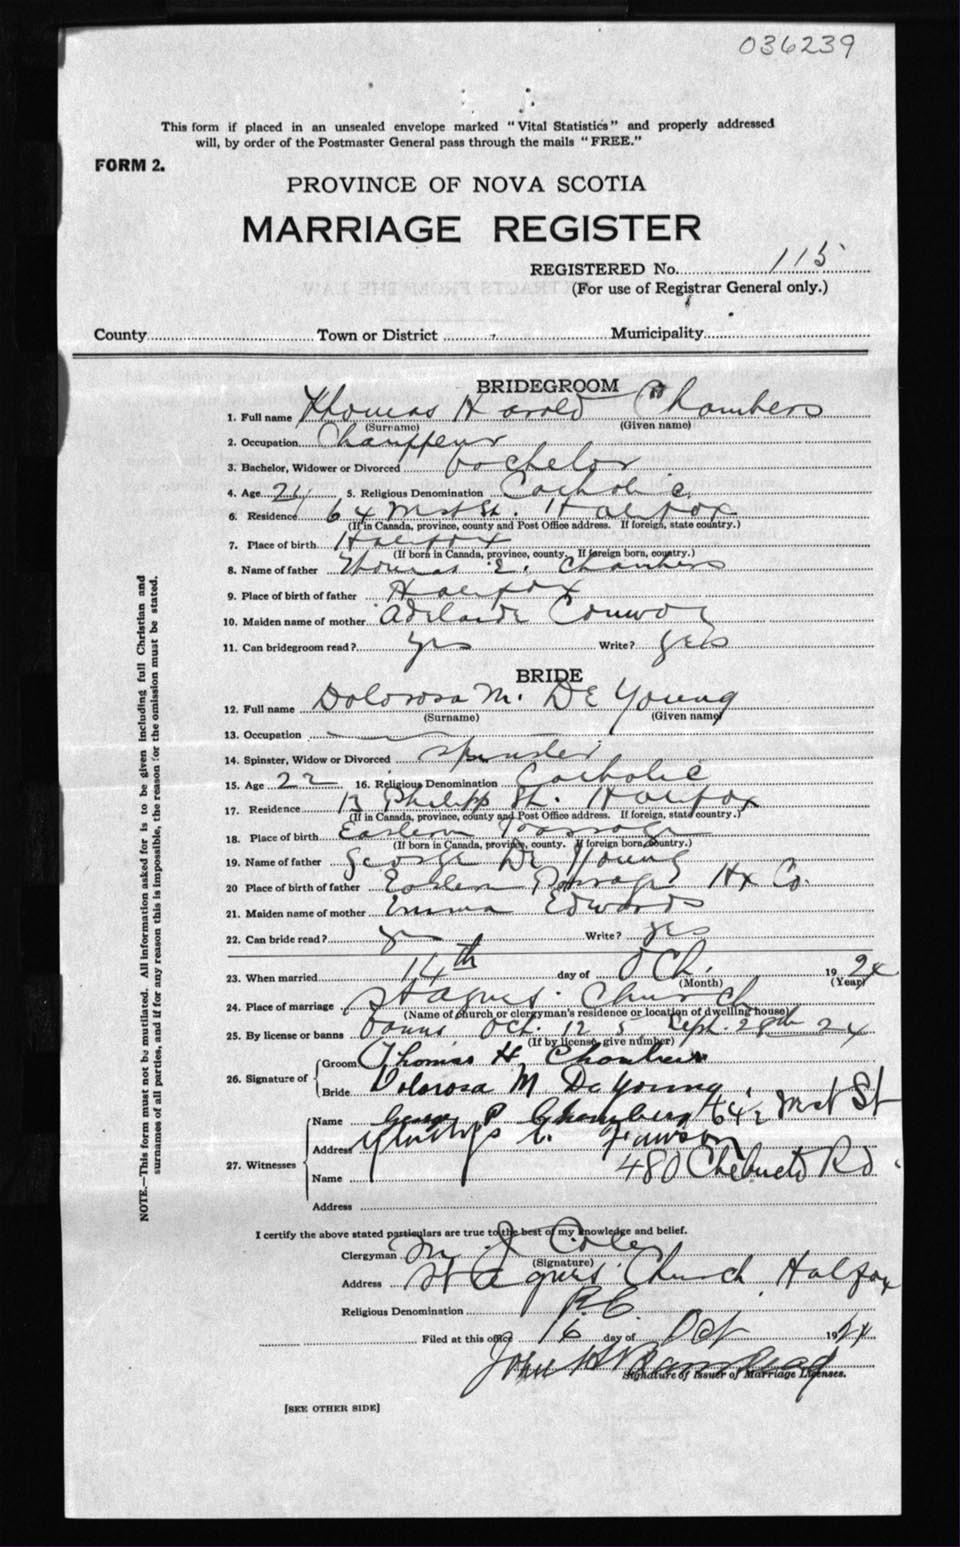 036239
This form if placed in an unsealed envelope marked "Vital Statistics" and properly addressed
will, by order of the Postmaster General pass through the mails "FREE."
FORM 2.
PROVINCE OF NOVA SCOTIA
MARRIAGE REGISTER
REGISTERED No. 115
(For use of Registrar General only.)
County Town or District Municipality
BRIDEGROOM
1. Full name Thomas Harold Chambers
(Surname) (Given name)
2. Occupation Chauffeur
3. Bachelor, Widower or Divorced bachelor
4. Age 5. Religious Denomination Catholic
6. Residence 64 St. Halifax
(If in Canada, province, county and Post Office address. If foreign, state country.)
7. Place of birth Halifax
(If born in Canada, province, county. If foreign born, country.)
8. Name of father Thomas E. Chambers
9. Place of birth of father Halifax
10. Maiden name of mother Adelaide Conway
11. Can bridegroom read? yes Write? yes
BRIDE
12. Full name Dolorosa M. De Young
(Surname) (Given name)
13. Occupation
14. Spinster, Widow or Divorced spinster
15. Age 22 16. Religious Denomination Catholic
17. Residence 13 Philipp St. Halifax
(If in Canada, province, county and Post Office address. If foreign, state country.)
18. Place of birth Eastern Passage
(If born in Canada, province, county. If foreign born, country.)
19. Name of father George De Young
20 Place of birth of father Eastern Passage Hx Co.
21. Maiden name of mother Emma Edwards
22. Can bride read? yes Write? yes
23. When married 14th day of Oct. 1924
(Month) (Year)
24. Place of marriage St Agnes Church
(Name of church or clergyman's residence or location of dwelling house)
25. By license or banns banns Oct. 12 5 Sept. 28th 24
(If by license, give number)
26. Signature of Groom Thomas H. Chambers
Bride Dolorosa M De Young
27. Witnesses
Name P Chambers 64½ St
Address C. Lawson
Name 480 Chebucto Rd.
Address
I certify the above stated particulars are true to the best of my knowledge and belief.
Clergyman M J Cole
(Signature)
Address St Agnes Church Halifax
Religious Denomination R.C.
Filed at this office 16 day of Oct 1924
John
Signature of Issuer of Marriage Licenses.
[SEE OTHER SIDE]
NOTE.—This form must not be mutilated. All information asked for is to be given including full Christian and
surnames of all parties, and if for any reason this is impossible, the reason for the omission must be stated.